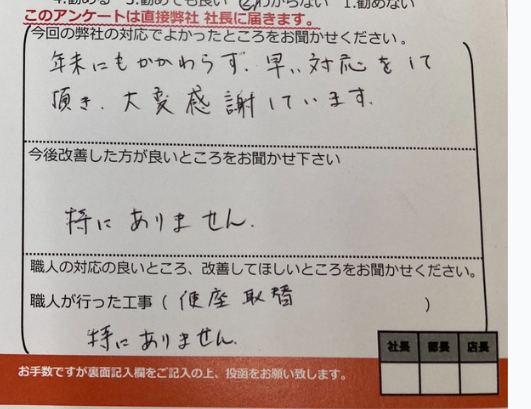 4.勧める 3.勧めても良い 2.わからない 1.勧めない
このアンケートは直接弊社 社長に届きます。
今回の弊社の対応でよかったところをお聞かせください。
年末にもかかわらず、早い対応をして
頂き、大変感謝しています。
今後改善した方が良いところをお聞かせ下さい
特にありません.
職人の対応の良いところ、改善してほしいところをお聞かせください。
職人が行った工事 ( 便座 取替 )
特にありません.
社長 部長 店長
お手数ですが裏面記入欄をご記入の上、投函をお願い致します。